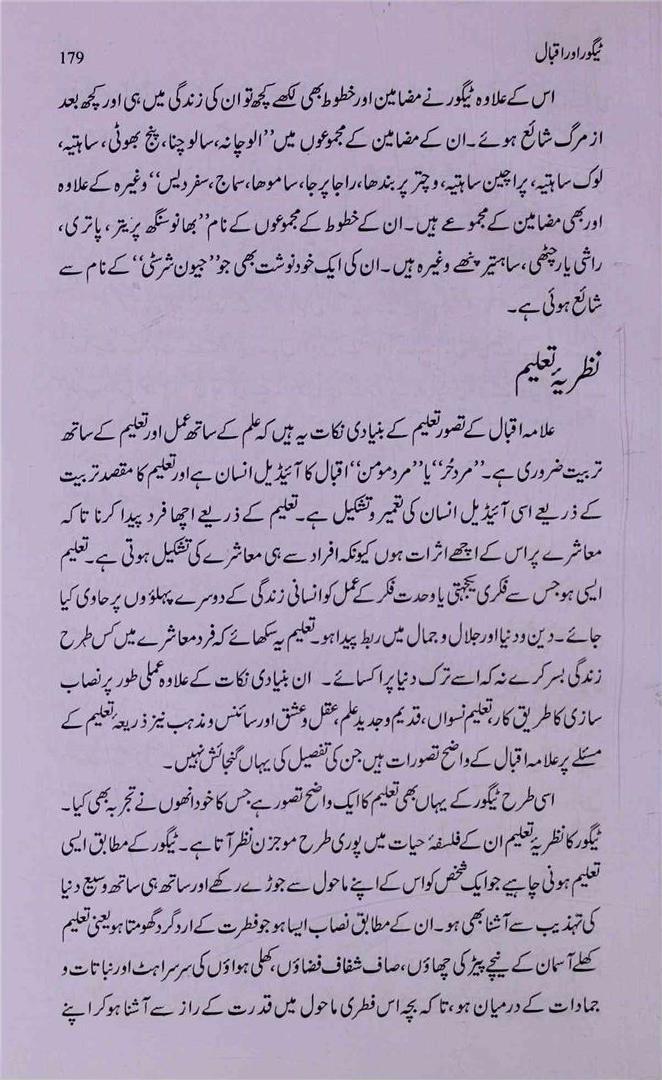 ٹیگور اور اقبال
179
اس کے علاوہ ٹیگور نے مضامین اور خطوط بھی لکھے کچھ تو ان کی زندگی میں ہی اور کچھ بعد
از مرگ شائع ہوئے۔ ان کے مضامین کے مجموعوں میں ”الوچانہ، سالوچنا، پنج بھوٹی، ساہتیہ،
لوک ساہتیہ، پراچین ساہتیہ، وچتر پربندھا، راجا پرجا، ساموھا، سماج، سفردیس“ وغیرہ کے علاوہ
اور بھی مضامین کے مجموعے ہیں۔ ان کے خطوط کے مجموعوں کے نام ”بھانو سنگھ پریتر، پاتری،
راشی یارچٹھی، ساہتیر پتھے وغیرہ ہیں۔ ان کی ایک خودنوشت بھی جو ”جیون شرسٹی“ کے نام سے
شائع ہوئی ہے۔
نظریۂ تعلیم
علامہ اقبال کے تصور تعلیم کے بنیادی نکات یہ ہیں کہ علم کے ساتھ عمل اور تعلیم کے ساتھ
تربیت ضروری ہے۔ ”مردحُر“ یا ”مردمومن“ اقبال کا آئیڈیل انسان ہے اور تعلیم کا مقصد تربیت
کے ذریعے اسی آئیڈیل انسان کی تعمیر و تشکیل ہے۔ تعلیم کے ذریعے اچھا فرد پیدا کرنا تاکہ
معاشرے پر اس کے اچھے اثرات ہوں کیونکہ افراد سے ہی معاشرے کی تشکیل ہوتی ہے۔ تعلیم
ایسی ہو جس سے فکری یکجہتی یا وحدت فکر کے عمل کو انسانی زندگی کے دوسرے پہلوؤں پر حاوی کیا
جائے۔ دین و دنیا اور جلال و جمال میں ربط پیدا ہو۔ تعلیم یہ سکھائے کہ فرد معاشرے میں کس طرح
زندگی بسر کرے نہ کہ اسے ترک دنیا پر اکسائے۔ ان بنیادی نکات کے علاوہ عملی طور پر نصاب
سازی کا طریق کار، تعلیم نسواں، قدیم و جدید علم، عقل و عشق اور سائنس و مذہب نیز ذریعۂ تعلیم کے
مسئلے پر علامہ اقبال کے واضح تصورات ہیں جن کی تفصیل کی یہاں گنجائش نہیں۔
اسی طرح ٹیگور کے یہاں بھی تعلیم کا ایک واضح تصور ہے جس کا خود انھوں نے تجربہ بھی کیا۔
ٹیگور کا نظریۂ تعلیم ان کے فلسفۂ حیات میں پوری طرح موجزن نظر آتا ہے۔ ٹیگور کے مطابق ایسی
تعلیم ہونی چاہیے جو ایک شخص کو اس کے اپنے ماحول سے جوڑے رکھے اور ساتھ ہی ساتھ وسیع دنیا
کی تہذیب سے آشنا بھی ہو۔ ان کے مطابق نصاب ایسا ہو جو فطرت کے ارد گرد گھومتا ہو یعنی تعلیم
کھلے آسمان کے نیچے پیڑ کی چھاؤں، صاف شفاف فضاؤں، کھلی ہواؤں کی سرسراہٹ اور نباتات و
جمادات کے درمیان ہو، تاکہ بچہ اس فطری ماحول میں قدرت کے راز سے آشنا ہو کر اپنے